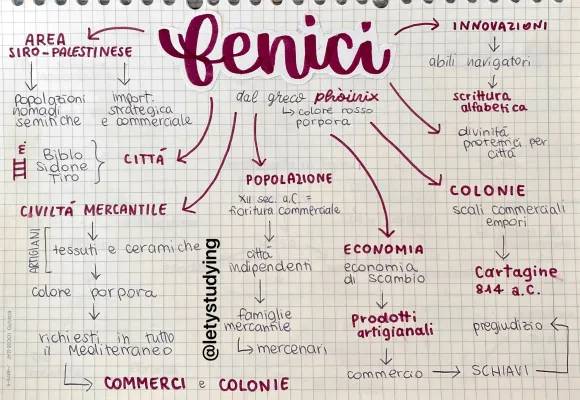 fenici
dal greco phòinix
colore rosso
porpora
AREA
SIRO-PALESTINESE
popolazioni
nomadi
semitiche
import.
strategica
e commerciale
CITTÁ
III m.
Biblo
Sidone
Tiro
CIVILTÁ MERCANTILE
ARTIGIANI
tessuti e ceramiche
colore porpora
richiesti in tutto
il Mediterraneo
COMMERCI e COLONIE
POPOLAZIONE
XII sec. a.C. =
fioritura commerciale
città
indipendenti
famiglie
mercantile
mercenari
@letystudying
ECONOMIA
economia
di scambio
Prodotti
artigianali
commercio
SCHIAVI
pregiudizio
INNOVAZIONI
abili navigatori
scrittura
alfabetica
divinitá
protettrici per
città
COLONIE
scali commerciali
empori
Cartagine
814 a.C.